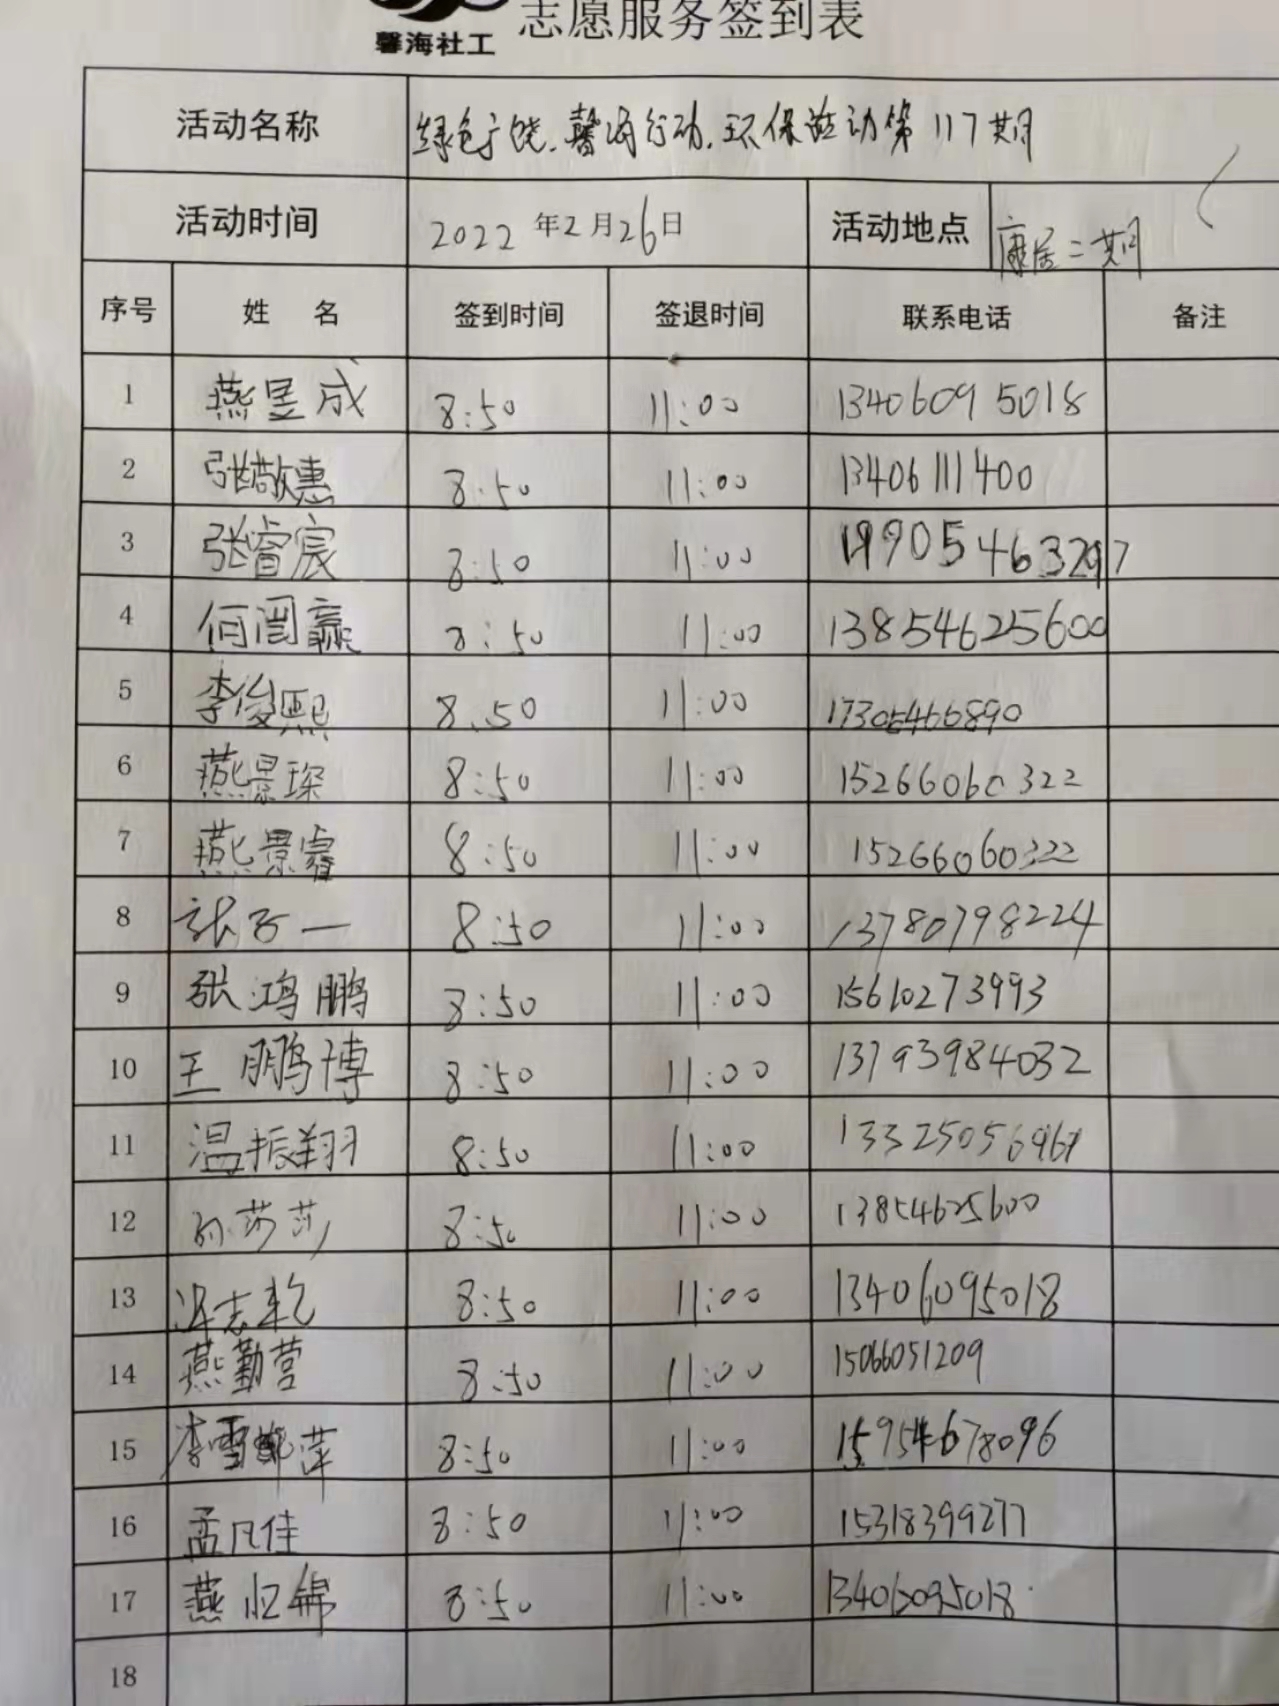 馨海社工 志愿服务签到表
活动名称 绿色广饶.馨海行动.环保活动第117期
活动时间 2022年2月26日 活动地点 康居二期
序号 姓 名 签到时间 签退时间 联系电话 备注
1 燕昱成 8:50 11:00 13406095018
2 张敬惠 8:50 11:00 13406111400
3 张睿宸 8:50 11:00
4 何润赢 8:50 11:00 13854625600
5 李俊熙 8:50 11:00 17305466890
6 燕景琛 8:50 11:00 15266060322
7 燕景睿 8:50 11:00 15266060322
8 张子一 8:50 11:00 13780798224
9 张鸿鹏 8:50 11:00 15610273993
10 王鹏博 8:50 11:00 13793984032
11 温振翔 8:50 11:00
12 孙莎莎 8:50 11:00 13854625600
13 志乾 8:50 11:00 13406095018
14 燕勤营 8:50 11:00 15066051209
15 李雪萍 8:50 11:00 15954678096
16 孟凡佳 8:50 11:00 15318399277
17 燕归锦 8:50 11:00 13406095018
18